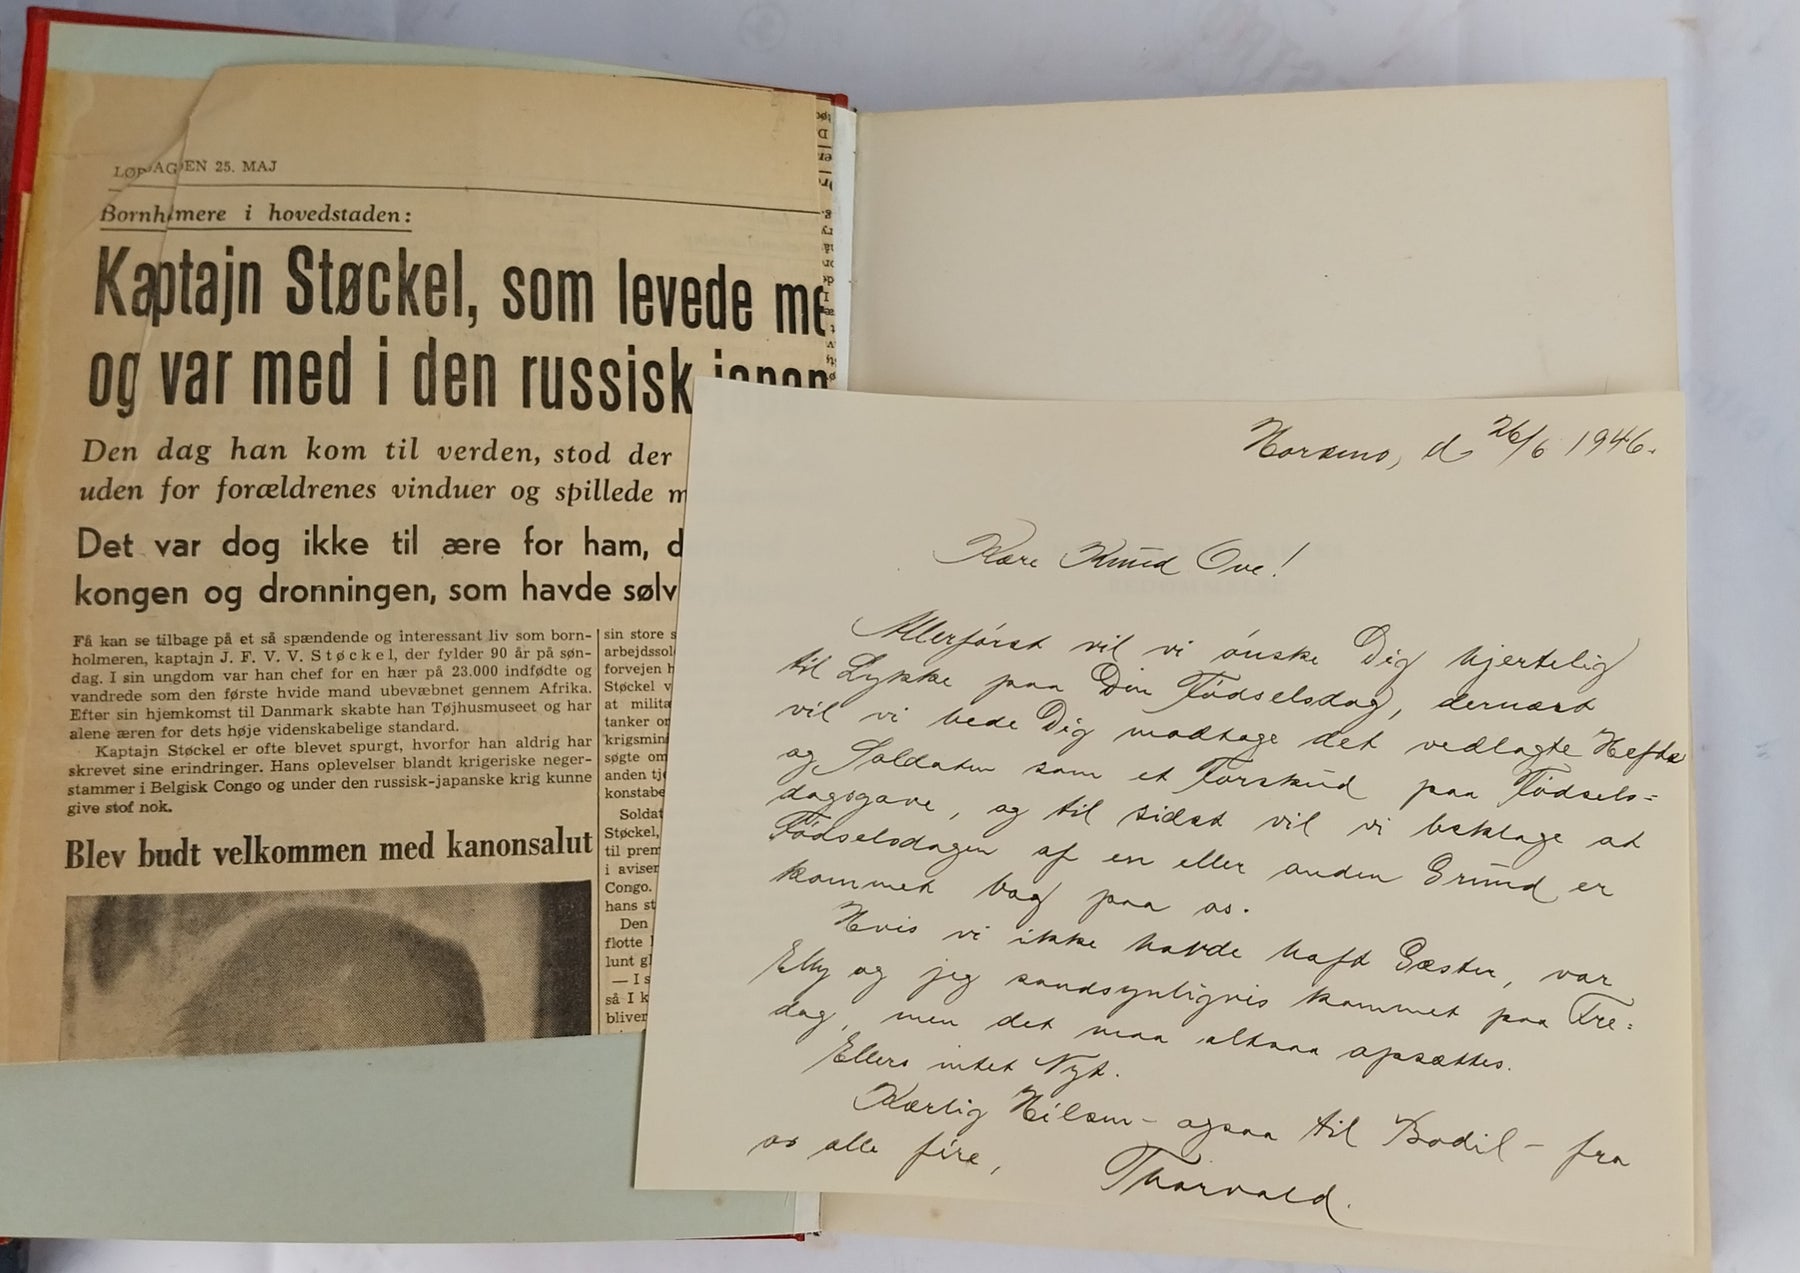 LØRDAGEN 25. MAJ
Bornholmere i hovedstaden:
Kaptajn Støckel, som levede me
og var med i den russisk japan
Den dag han kom til verden, stod der
uden for forældrenes vinduer og spillede m
Det var dog ikke til ære for ham, d
kongen og dronningen, som havde sølv
Få kan se tilbage på et så spændende og interessant liv som born-
holmeren, kaptajn J. F. V. V. Støckel, der fylder 90 år på søn-
dag. I sin ungdom var han chef for en hær på 23.000 indfødte og
vandrede som den første hvide mand ubevæbnet gennem Afrika.
Efter sin hjemkomst til Danmark skabte han Tøjhusmuseet og har
alene æren for dets høje videnskabelige standard.
Kaptajn Støckel er ofte blevet spurgt, hvorfor han aldrig har
skrevet sine erindringer. Hans oplevelser blandt krigeriske neger-
stammer i Belgisk Congo og under den russisk-japanske krig kunne
give stof nok.
Blev budt velkommen med kanonsalut
sin store s
arbejdssol
forvejen h
Støckel v
at milita
tanker or
krigsmin
søgte om
anden tj
konstabe
Soldat
Støckel,
til prem
i aviser
Congo.
hans st
Den
flotte
lunt gl
— I s
så I k
bliver
d 26/6 1946.
Kære Knud Ove!
Allerførst vil vi ønske Dig hjertelig
til Lykke paa Din Fødselsdag, dernæst
vil vi bede Dig modtage det vedlagte Hefte
og Soldaten som et Forskud paa Fødsels=
dagsgave, og til sidst vil vi beklage at
Fødselsdagen af en eller anden Grund er
kommet bag paa os.
Hvis vi ikke havde haft Gæster, var
Elly og jeg sandsynligvis kommet paa Fre=
dag, men det maa altsaa opsættes.
Ellers intet Nyt.
Kærlig Hilsen - ogsaa til Bodil - fra
os alle fire,
Thorvald.